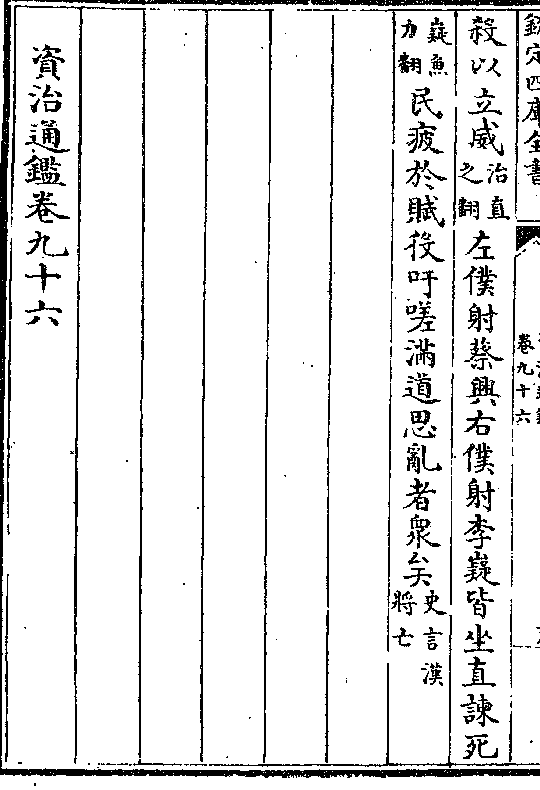 欽定四庫全書
卷九十六
殺以立威治直之翻左僕射蔡興右僕射李嶷皆坐直諫死
嶷魚力翻民疲於賦役吁嗟滿道思亂者衆矣史言漢將亡
資治通鑑卷九十六